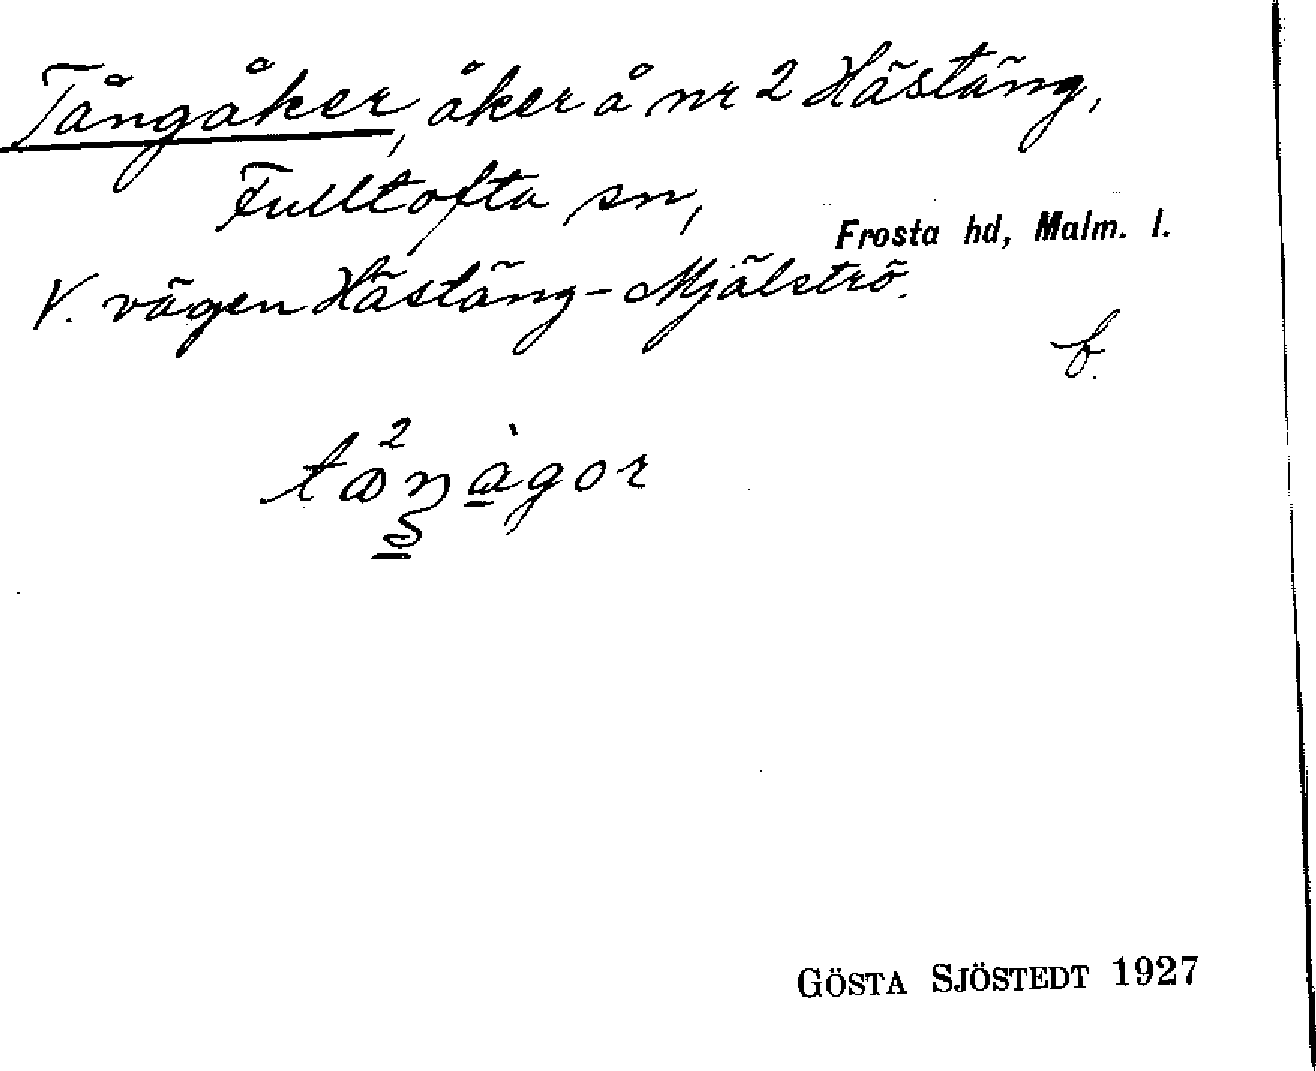 Tångåker, åker å nr 2 Hästäng,
Fulltofta sn, Frosta hd, Malm. l.
V. vägen Hästäng-Mjälströ.
b.
GÖSTA SJÖSTEDT 1927